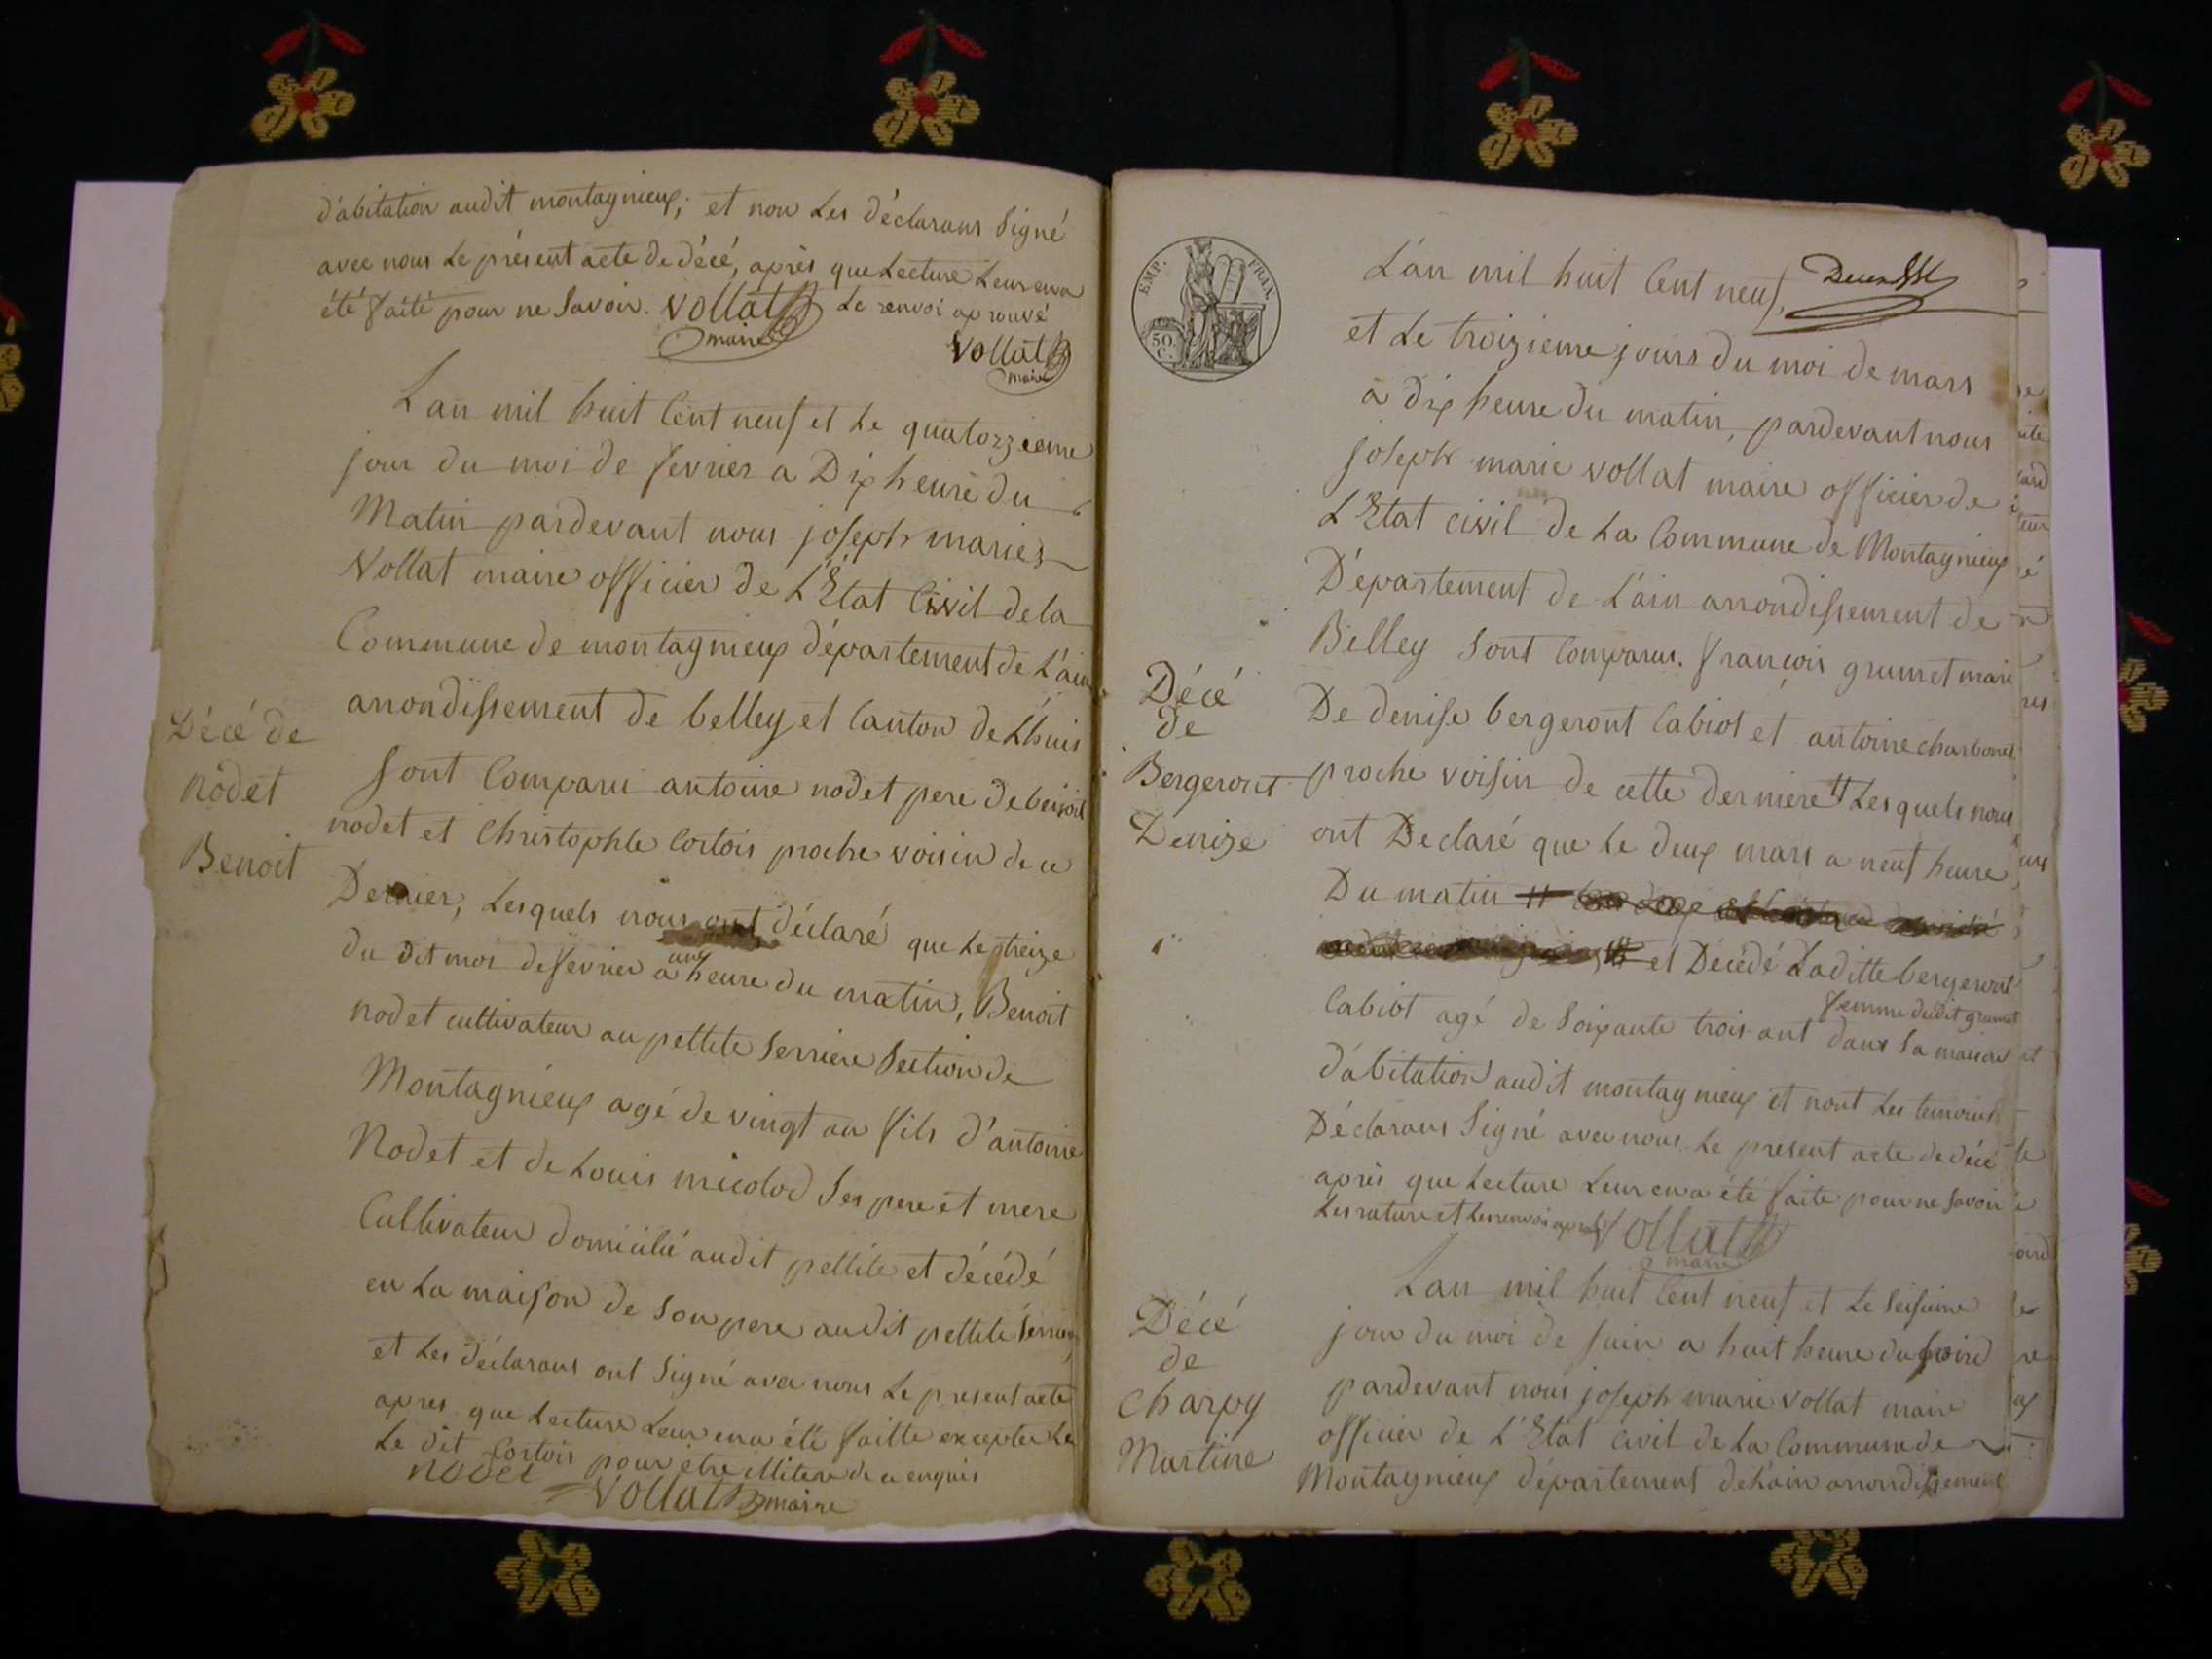 d'abitation audit montagnieux; et non les déclarans signé
avec nous le présent acte de décé, après que lecture leur en a
été faite pour ne savoir. Vollat le renvoi aprouvé
maire
Vollat
maire
Lan mil huit cent neuf et le quatorzieme
jour du moi de fevrier a Dix heure du
Matin pardevant nous joseph marie
Vollat maire officier de L'Etat Civil de la
Commune de montagnieux département de L'ain
arrondissement de belley et canton de Lhuis
Décé de
nodet
Benoit
sont Comparu antoine nodet pere de benoit
nodet et Christophle Cortois proche voisin de ce
Dernier, Lesquels nous ont déclaré que le treize
du dit moi de fevrier a une heure du matin, Benoit
nodet cultivateur au pettite Serriere Section de
Montagnieux agé de vingt an fils d'antoine
Nodet et de Louis micolod Ses pere et mere
Cultivateur domicilié audit pettite et décédé
en La maison de son pere audit pettite
et Les déclarans ont Signé avec nous Le present acte
apres que Lecture Leur en a été faitte excepter Le
Le dit Cortois pour etre illitere de ce enquis
nodet Vollat maire
EMP. FRAN.
50
C.
L'an mil huit Cent neuf,
et Le troizieme jours du moi de mars
a dix heure du matin, pardevant nous
joseph marie vollat maire officier de
L'Etat civil de La Commune de Montagnieux
Département de L'ain arrondissement de
Belley sont Comparus. françois grumet mari
Décé
de
Bergeront
Denize
De denise bergeront Cabiot et antoine charbonet
proche voisin de cette derniere Lesquels nous
ont Declaré que Le deux mars a neuf heure
Du matin
et Décédé Laditte bergeront
femme dudit grumet
Cabiot agé de Soixante trois ant dans Sa maison
d'abitation audit montagnieux et nont Les temoins
Déclarans Signé avec nous Le present acte de décé
après que Lecture Leur en a été faite pour ne Savoir
Les rature et Les renvoi Vollat
maire
Lan mil huit Cent neuf et Le Seisieme
Décé
de
Charpy
Martine
jour du moi de Juin a huit heure du
pardevant nous joseph marie Vollat maire
officier de L'Etat Civil de La Commune de
Montagnieux département de L'ain arrondissement